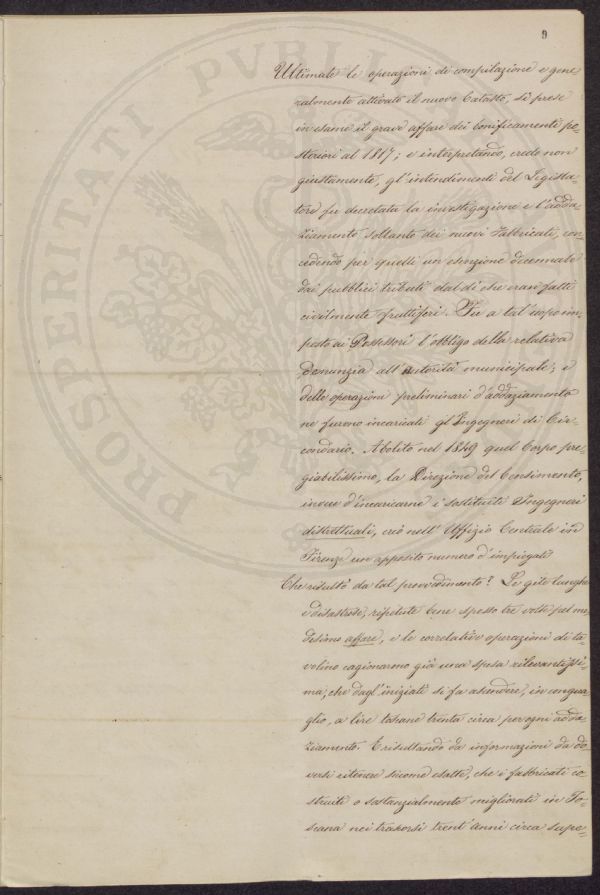 9
Ultimate le operazioni di compilazione e gene
ralmente attivato il nuovo Catasto, si prese
in esame il grave affare dei bonificamenti po-
steriori al 1817; e interpretando, credo non
giustamente, gl'intendimenti del Legisla-
tore fu decretata la investigazione e l'adda-
ziamento soltanto dei nuovi Fabbricati, con-
cedendo per quelli un esenzione decennale
dai pubblici tributi dal dì che eran fatti
civilmente fruttiferi. Fu a tal'uopo im-
posto ai Possessori l'obbligo della relativa
denunzia all'autorità municipale; e
delle operazioni preliminari d'addaziamento
ne furono incaricati gl'Ingegneri di Cir-
condario. Abolito nel 1849 quel Corpo pre-
giabilissimo, la Direzione del Censimento,
invece d'incaricarne i sostituiti Ingegneri
distrettuali, creò nell'Uffizio Centrale in
Firenze un apposito numero d'impiegati
Che risultò da tal provvedimento? Le gite lunghe
e disastrose, ripetute bene spesso tre volte pel me-
desimo affare, e le correlative operazioni di ta-
volino cagionarono già una spesa rilevantissi-
ma, che dagl'iniziati si fa ascendere, in congua-
glio, a lire toscane trenta circa per ogni adda-
ziamento. E risultando da informazioni da do-
versi ritenere siccome esatte, che i fabbricati co-
struiti o sostanzialmente migliorati in To-
scana nei trascorsi trent'anni circa supe-
PROSPERITATI PVBLI